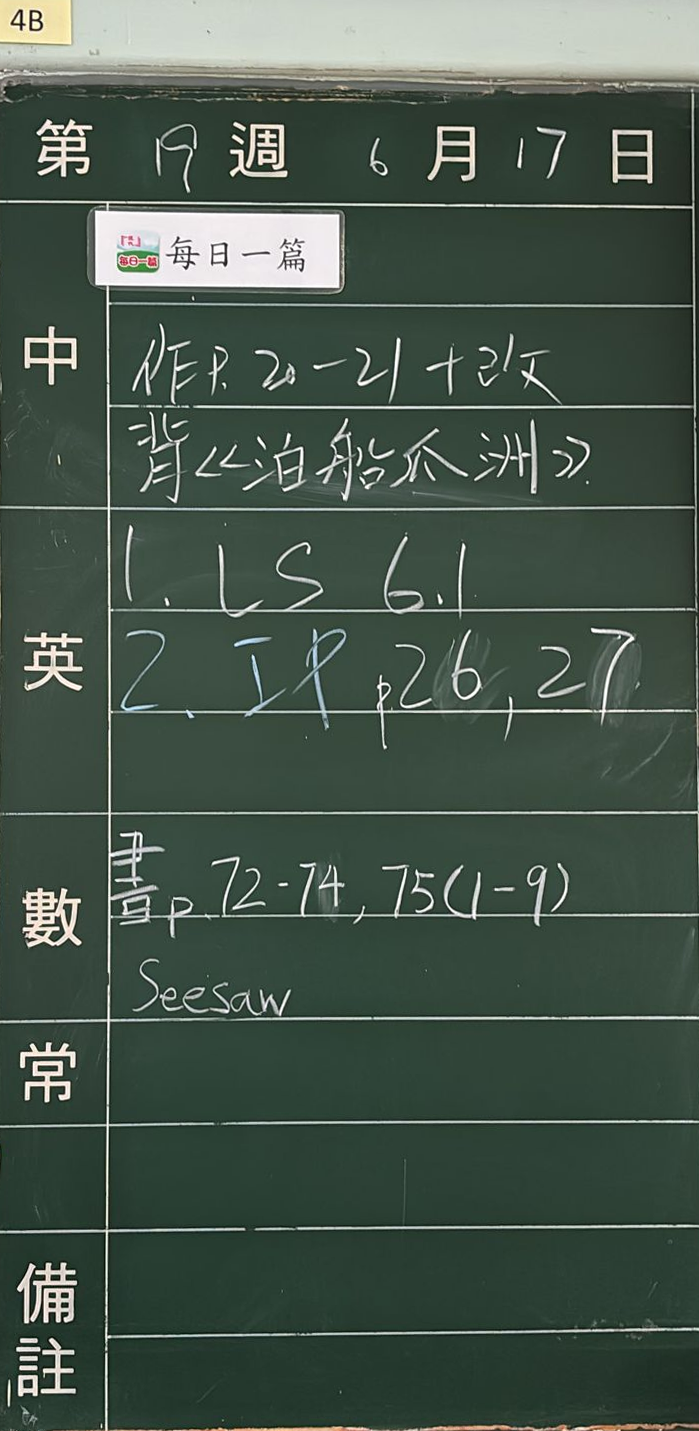 4B
第 19 週 6 月 17 日
每日一篇
每日一篇
中
作P. 20-21 + 改
背《泊船瓜洲》
英
1. LS 6.1
2. IP p.26, 27
數
書p. 72-74, 75(1-9)
Seesaw
常
備註